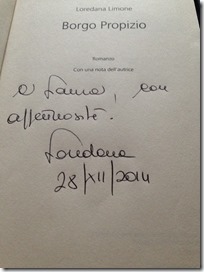 Loredana Limone
Borgo Propizio
Romanzo
Con una nota dell'autore
a Laura, con
affettuosità.
Loredana
28/XII/2014